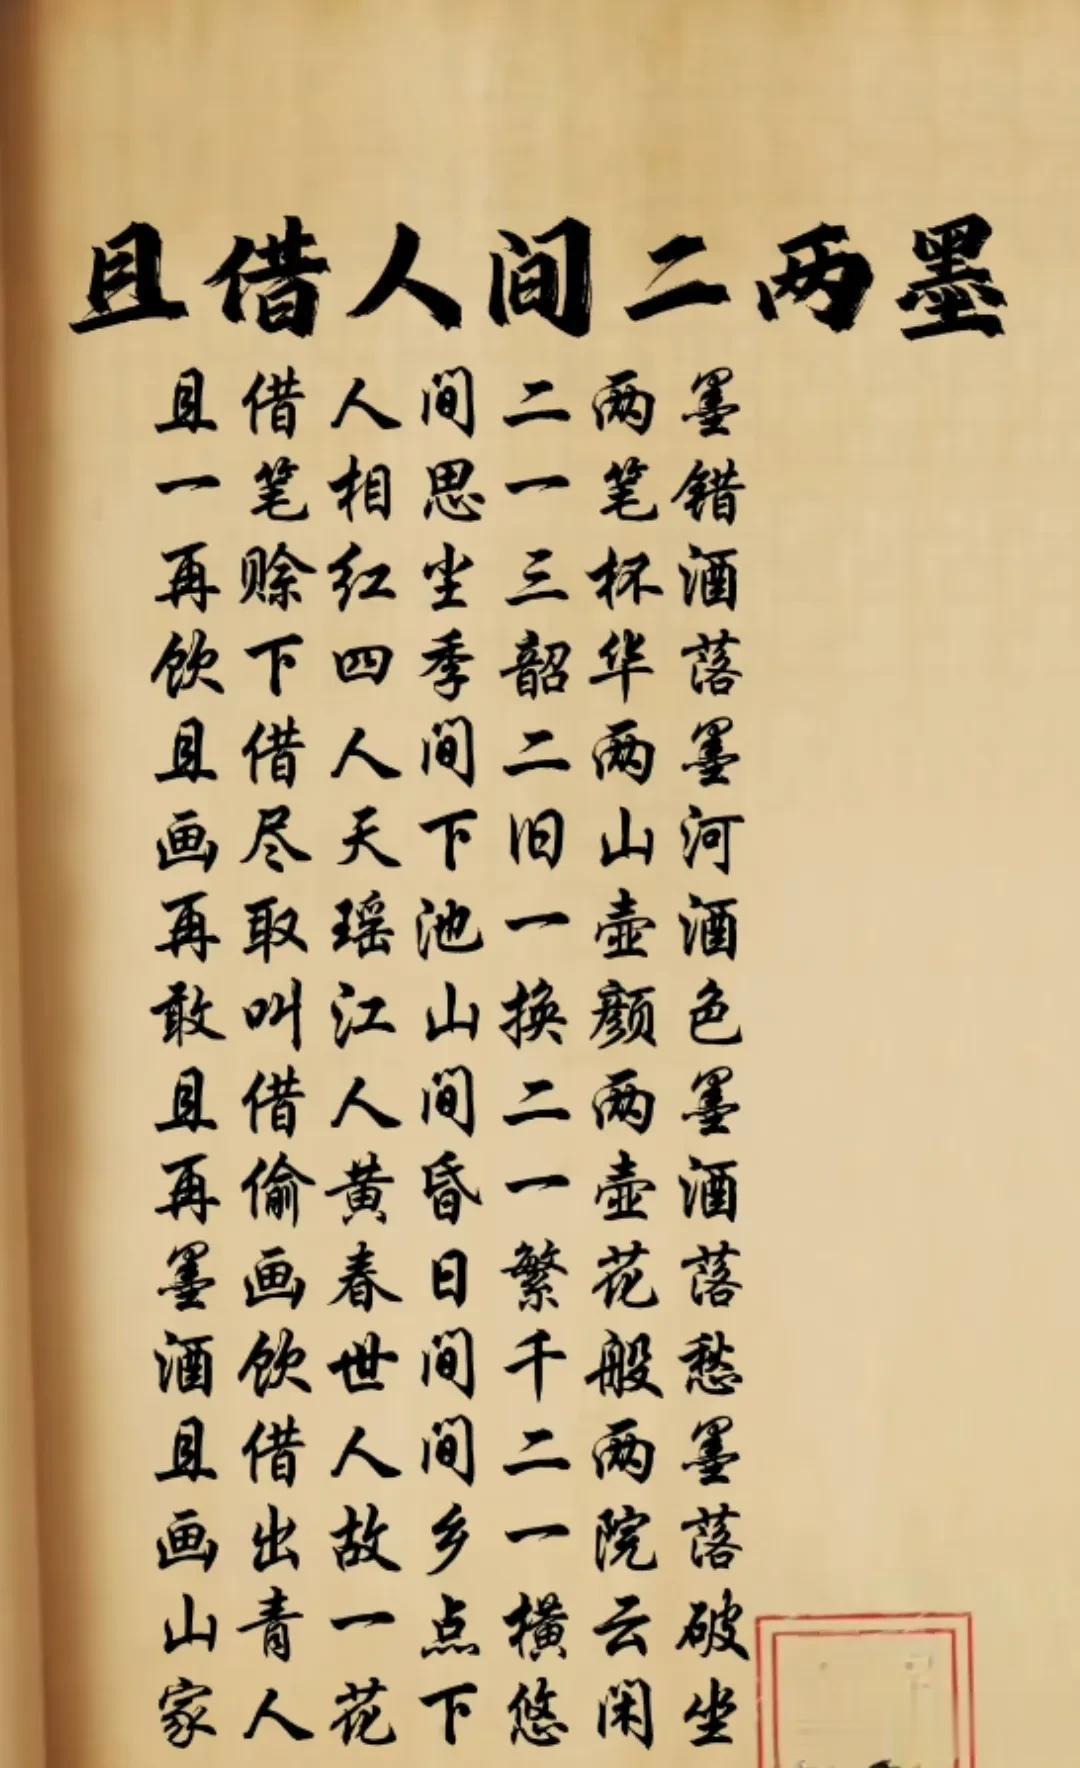 且借人间二两墨
且借人间二两墨
一笔相思一笔错
再赊红尘三杯酒
饮下四季韶华落
且借人间二两墨
画尽天下旧山河
再取瑶池一壶酒
敢叫江山换颜色
且借人间二两墨
再偷黄昏一壶酒
墨画春日繁花落
酒饮世间千般愁
且借人间二两墨
画出故乡一院落
山青一点横云破
家人花下悠闲坐